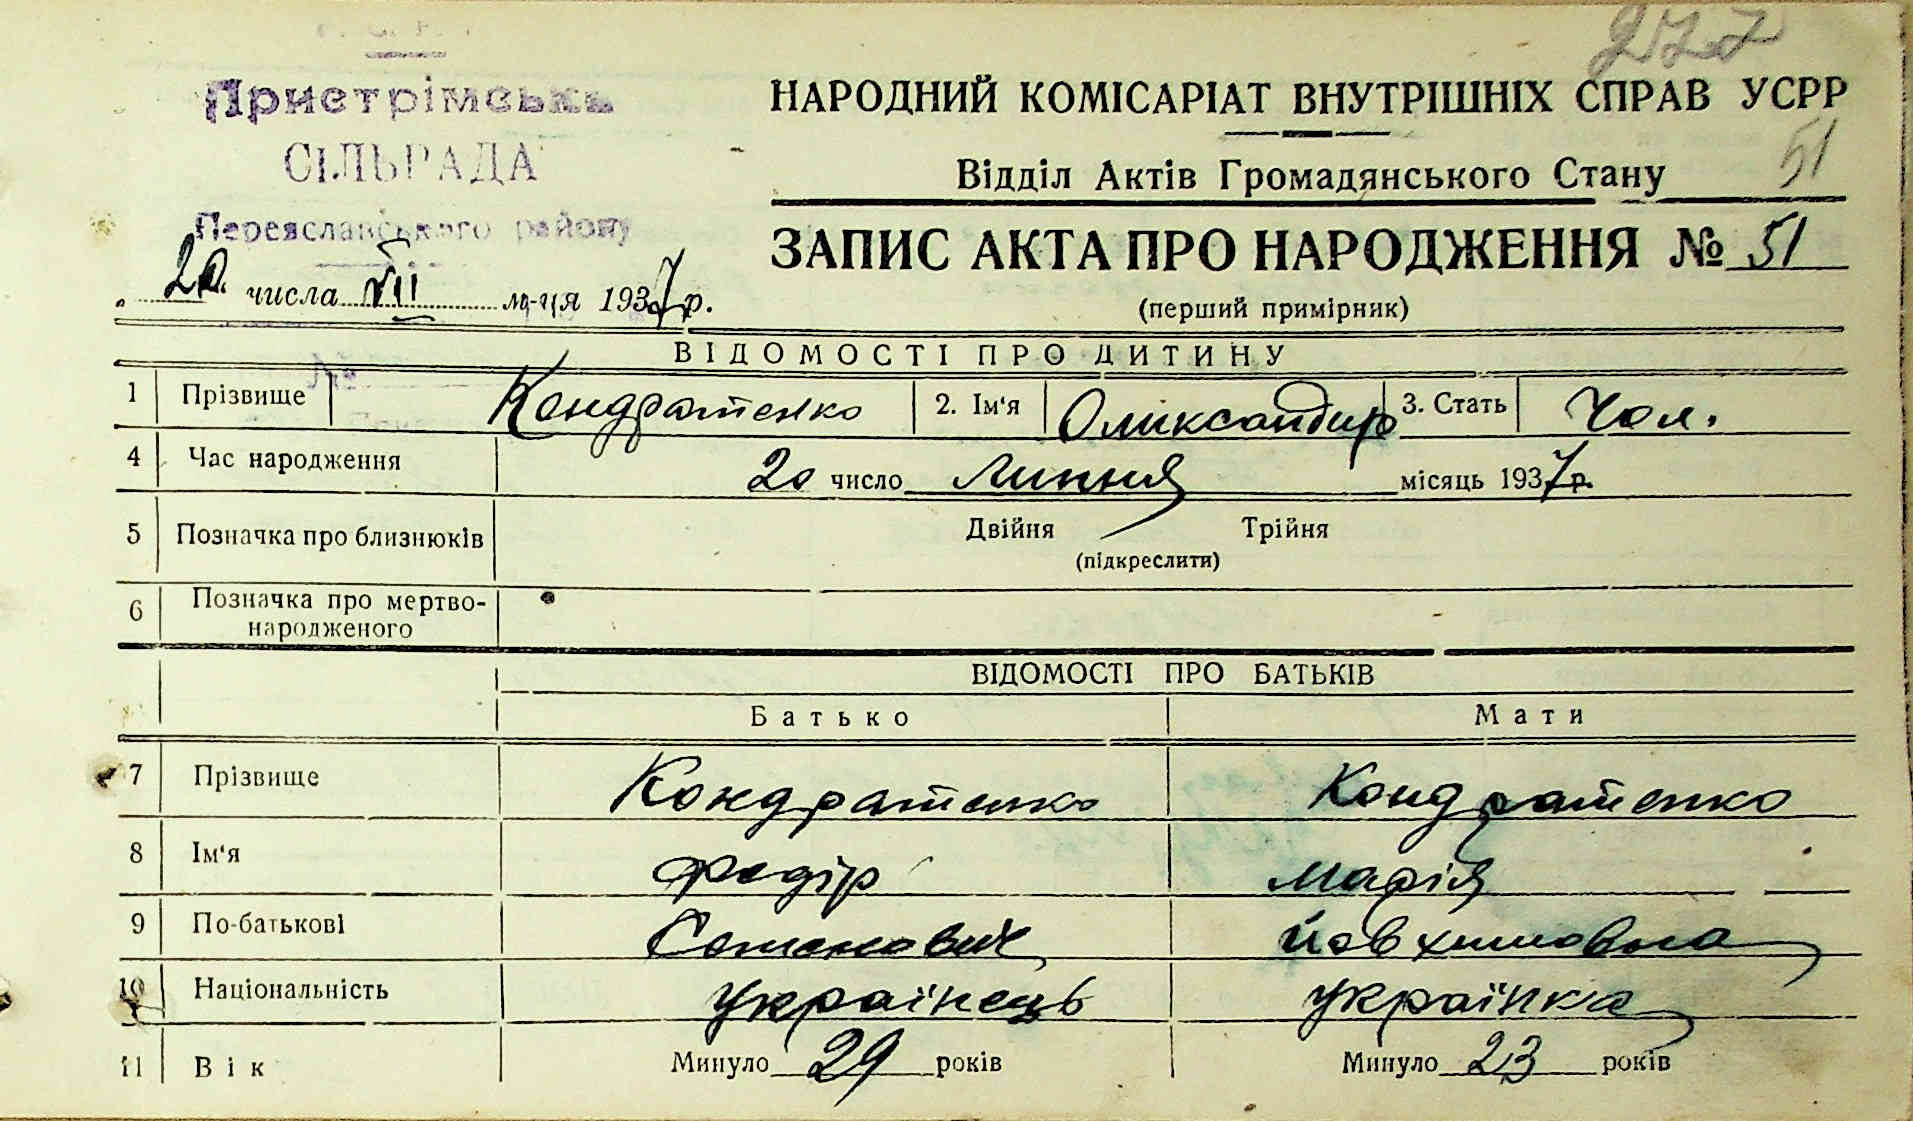 277
Пристрімська
СІЛЬРАДА
Переяславського району
20. числа VII м-ця 1937 р.
НАРОДНИЙ КОМІСАРІАТ ВНУТРІШНІХ СПРАВ УСРР
Відділ Актів Громадянського Стану 51
ЗАПИС АКТА ПРО НАРОДЖЕННЯ № 51
(перший примірник)
ВІДОМОСТІ ПРО ДИТИНУ
1 Прізвище Кондратенко 2. Ім'я Олександир 3. Стать Чол.
4 Час народження 20 число Липня місяць 1937 р.
5 Позначка про близнюків Двійня Трійня
(підкреслити)
6 Позначка про мертво-
народженого
ВІДОМОСТІ ПРО БАТЬКІВ
Батько Мати
7 Прізвище Кондратенко Кондратенко
8 Ім'я Федір Марія
9 По-батькові Семенович Йовхимовна
10 Національність українець українка
11 Вік Минуло 29 років Минуло 23 років